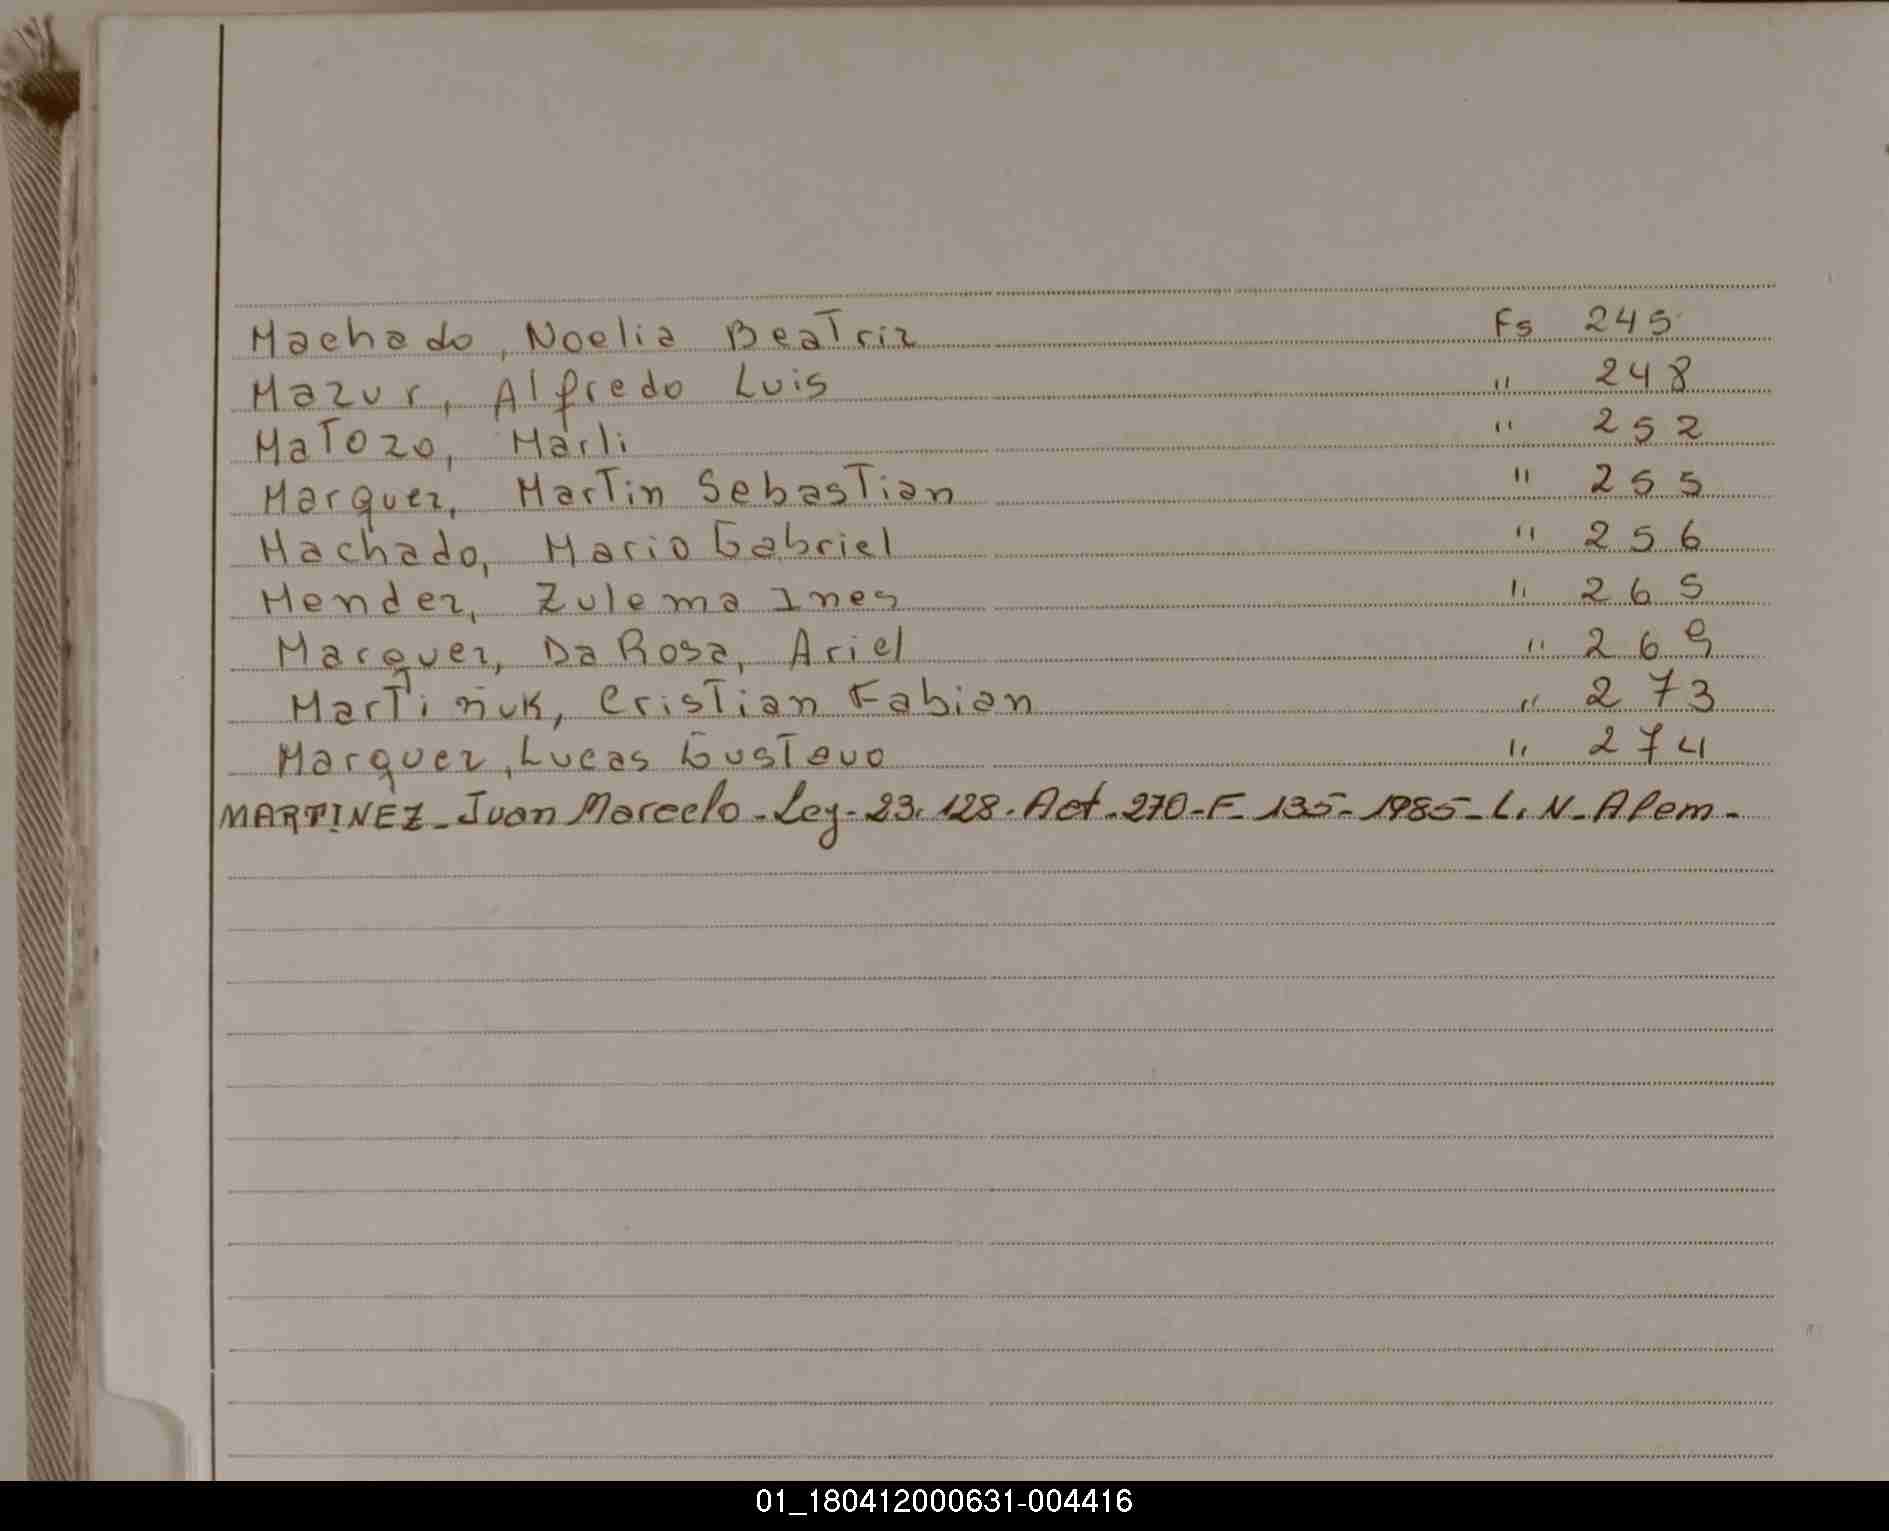 Machado, Noelia Beatriz Fs 245
Mazur, Alfredo Luis " 248
Matozo, Marli " 252
Marquez, Martin Sebastian " 255
Machado, Mario Gabriel " 256
Mendez, Zulema Ines " 265
Marquez, Da Rosa, Ariel " 269
Martiñuk, Cristian Fabian " 273
Marquez, Lucas Gustavo " 274
MARTINEZ - Juan Marcelo - Ley - 23.128. Act. 270 - F - 135 - 1985 - L. N. Alem -
01_180412000631-004416